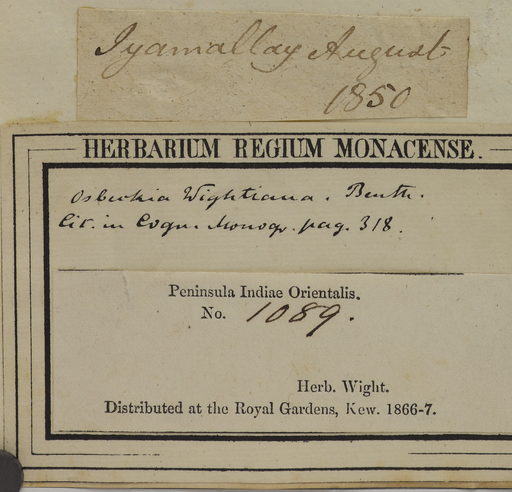 Iyamallay August
1850
HERBARIUM REGIUM MONACENSE.
Osbeckia Wightiana. Benth.
Cit. in Cogn. Monogr. pag. 318.
Peninsula Indiae Orientalis.
No. 1089.
Herb. Wight.
Distributed at the Royal Gardens, Kew. 1866-7.